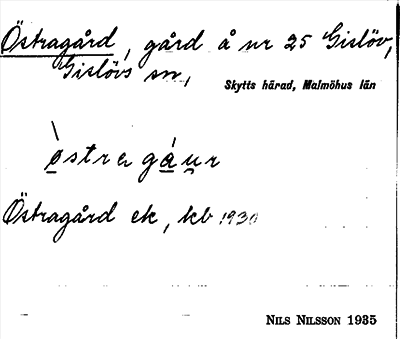 Östragård, gård å nr 25 Gislöv,
Gislövs sn,
Skytts härad, Malmöhus län
òstrɐ gáu̯r
Östragård ek, kb 1930
NILS NILSSON 1935